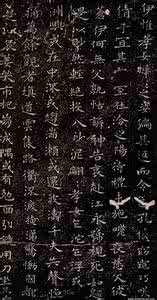 伊惟孝女曄曄之姿偏其返而令色孔儀
倩兮宜其家室在洽之陽待禮未施嗟喪慈父
蒼伊何無父孰怙訴神告哀赴江永號視死如歸
是以眇然輕絕投入沙泥翩翩孝女乍沉乍浮或
洲嶼或在中流或趨湍瀨或還波濤千夫失聲悼
痛萬餘觀者填道雲集路衢流淚掩涕驚慟國都
是以哀姜哭市杞崩城隅或有剋面引鏡剺耳用刀坐